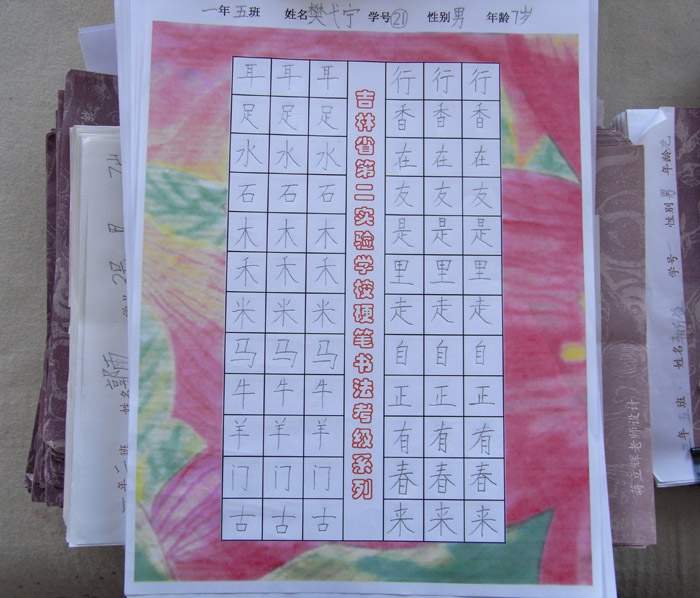 一年五班 姓名樊弋宁 学号㉑ 性别男 年龄7岁
耳耳耳 行行行
足足足 香香香
水水水 在在在
石石石 友友友
木木木 是是是
禾禾禾 里里里
米米米 走走走
马马马 自自自
牛牛牛 正正正
羊羊羊 有有有
门门门 春春春
古古古 来来来
吉林省第二实验学校硬笔书法考级系列
蒋立辉老师设计
班 姓名
学号一 性别男 年龄
一年二班 姓名
7岁